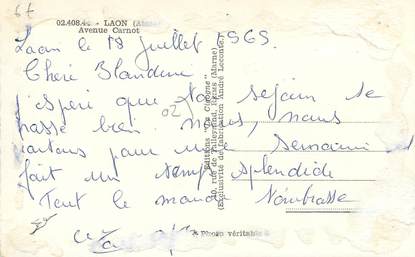 67
02.408.4 - LAON (Aisne)
Avenue Carnot
Laon le 18 Juillet 1969
Chère Blandine
j'espère que ton sejour se
passe bien. nous, nous
partons pour une semaine il
fait un temps splendide
Tout le monde t'embrasse
Editions "La Cigogne"
rue de Talleyrand, Reims (Marne)
(Exclusivité de fabrication André Leconte)
Photo véritable
02